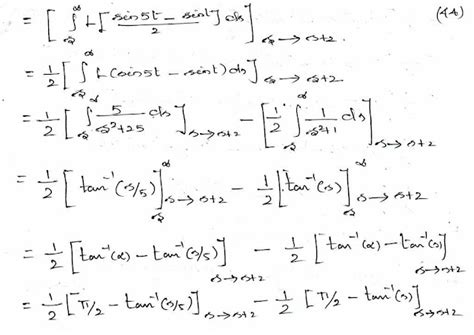 = [ ∫_s^∞ L[ (sin5t − sint)/2 ] ds ]_{s→s+2} (44)
= 1/2 [ ∫_s^∞ L(sin5t − sint) ds ]_{s→s+2}
= 1/2 [ ∫_s^∞ 5/(s²+25) ds ]_{s→s+2} − [ 1/2 ∫_s^∞ 1/(s²+1) ds ]_{s→s+2}
= 1/2 [ tan⁻¹(s/5) ]_s^∞ _{s→s+2} − 1/2 [ tan⁻¹(s) ]_s^∞ _{s→s+2}
= 1/2 [ tan⁻¹(∝) − tan⁻¹(s/5) ]_{s→s+2} − 1/2 [ tan⁻¹(∝) − tan⁻¹(s) ]_{s→s+2}
= 1/2 [ π/2 − tan⁻¹(s/5) ]_{s→s+2} − 1/2 [ π/2 − tan⁻¹(s) ]_{s→s+2}